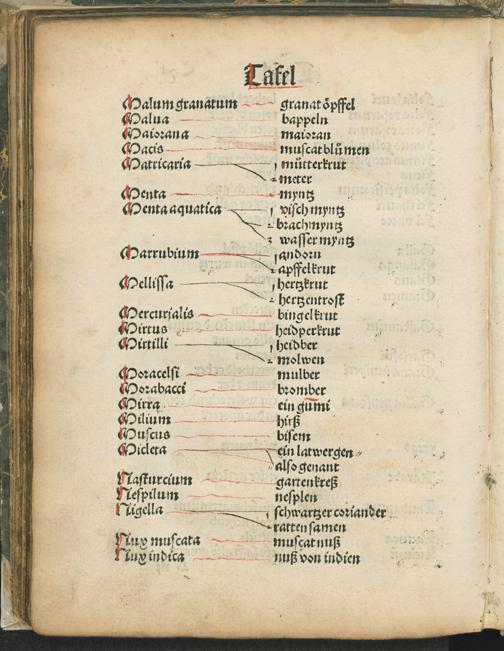 Tafel
Malum granatum granat öpffel
Malua bappeln
Maiorana maioran
Macis muscat blůmen
Matricaria 1 mütterkrut
2 meter
Menta myntz
Menta aquatica 1 visch myntz
2 brachmyntz
3 wasser myntz
Marrubium 1 andorn
2 apffelkrut
Mellissa 1 hertzkrut
2 hertzentrost
Mercurialis bingelkrut
Mirtus heidperkrut
Mirtilli 1 heidber
2 molwen
Moracelsi mulber
Morabacci bromber
Mirra ein gūmi
Milium hirß
Muscus bisem
Micleta ein latwergen
also genant
Nasturcium gartenkreß
Nespilum nesplen
Nigella 1 schwartzer coriander
2 ratten samen
Nux muscata muscat nuß
Nux indica nuß von indien